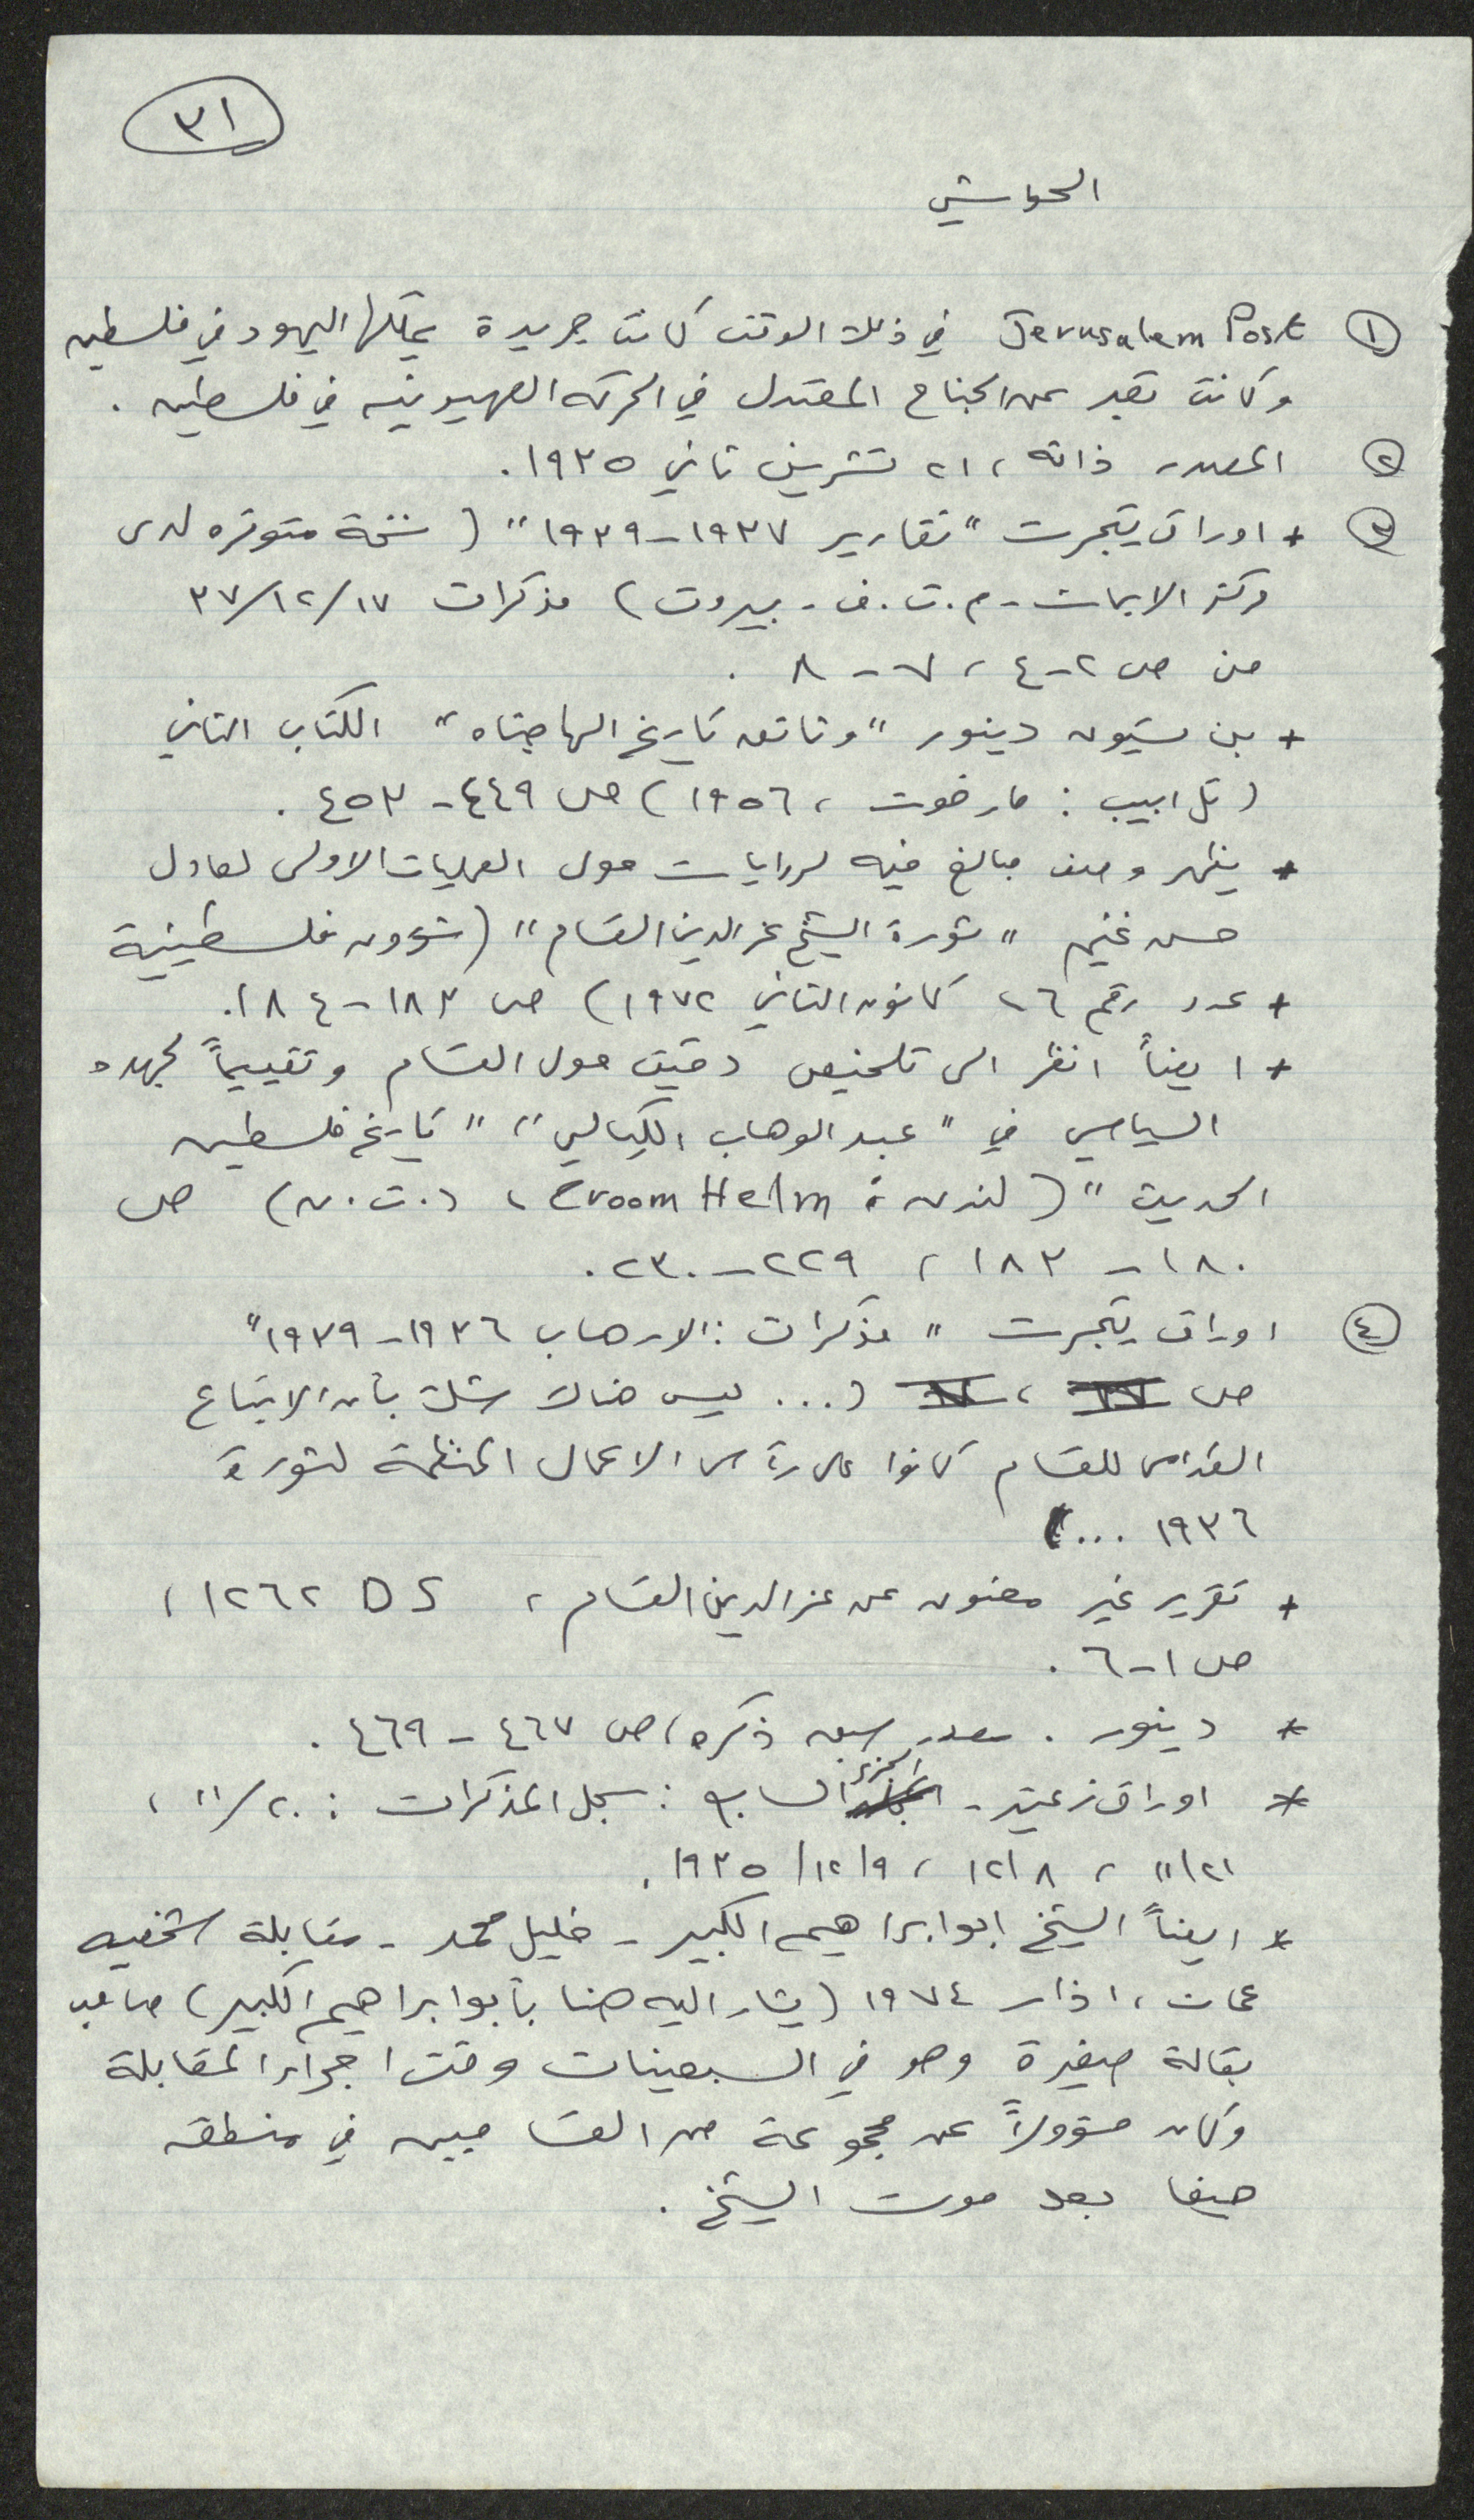 ٣١
الحواشي
١ Jerusalem Post في ذلك الوقت كانت جريدة يمتلكها اليهود في فلسطين
وكانت تعبر عن الجناح المعتدل في الحركه الصهيونيه في فلسطين .
٢ المصدر ذاته ، ٢١ تشرين ثاني ١٩٣٥ .
٣ + اوراق يتجرت " تقارير ١٩٣٧ - ١٩٣٩ " ( نسخة متوفره لدى
مركز الابحاث - م . ت . ف - بيروت ) مذكرات ١٧ / ١٢ / ٣٧
من ص ٢ - ٤ ، ٧ - ٨ .
+ بن تسيون دينور " وثائق تاريخ الهاجناه " الكتاب الثاني
( تل ابيب : مارخوت ، ١٩٥٦ ) ص ٤٤٩ - ٤٥٣ .
+ يظهر وصف مبالغ فيه لروايات حول العمليات الاولى لعادل
حسن غنيم " ثورة الشيخ عز الدين القسام " ( شؤون فلسطينية
+ عدد رقم ٦ ، كانون الثاني ١٩٧٢ ) ص ١٨٣ - ١٨٤ .
+ ايضاً انظر الى تلخيص دقيق حول القسام وتقييماً لجهده
السياسي في " عبد الوهاب الكيالي " " تاريخ فلسطين
الحديث " ( لندن : Croom Helm ، د . ت . ن ) ص
١٨٠ - ١٨٣ ، ٢٢٩ - ٢٣٠ .
٤ اوراق يتجرت " مذكرات : الارهاب ١٩٣٦ - ١٩٣٩ "
ص ، ( ... ليس هناك شك بأن الاتباع
القدامى للقسام كانوا على رأس الاعمال المنظمة لثورة
١٩٣٦ ... )
+ تقرير غير معنون عن عز الدين القسام ، D S ١٢٦٢ ،
ص ١ - ٦ .
* دينور . مصدر سبق ذكره ، ص ٤٦٧ - ٤٦٩ .
* اوراق زعيتر - الجزء السابع : سجل المذكرات : ٢٠ / ١١ ،
٢١ / ١١ ، ٨ / ١٢ ، ٩ / ١٢ / ١٩٣٥ .
* ايضاً الشيخ ابو ابراهيم الكبير - خليل محمد - مقابلة شخصيه
عمان ، اذار ١٩٧٤ ( يشار اليه هنا بأبو ابراهيم الكبير ) صاحب
بقالة صغيرة وهو في السبعينات وقت اجراء المقابلة
وكان مسؤولاً عن مجموعة من القساميين في منطقه
حيفا بعد موت الشيخ .